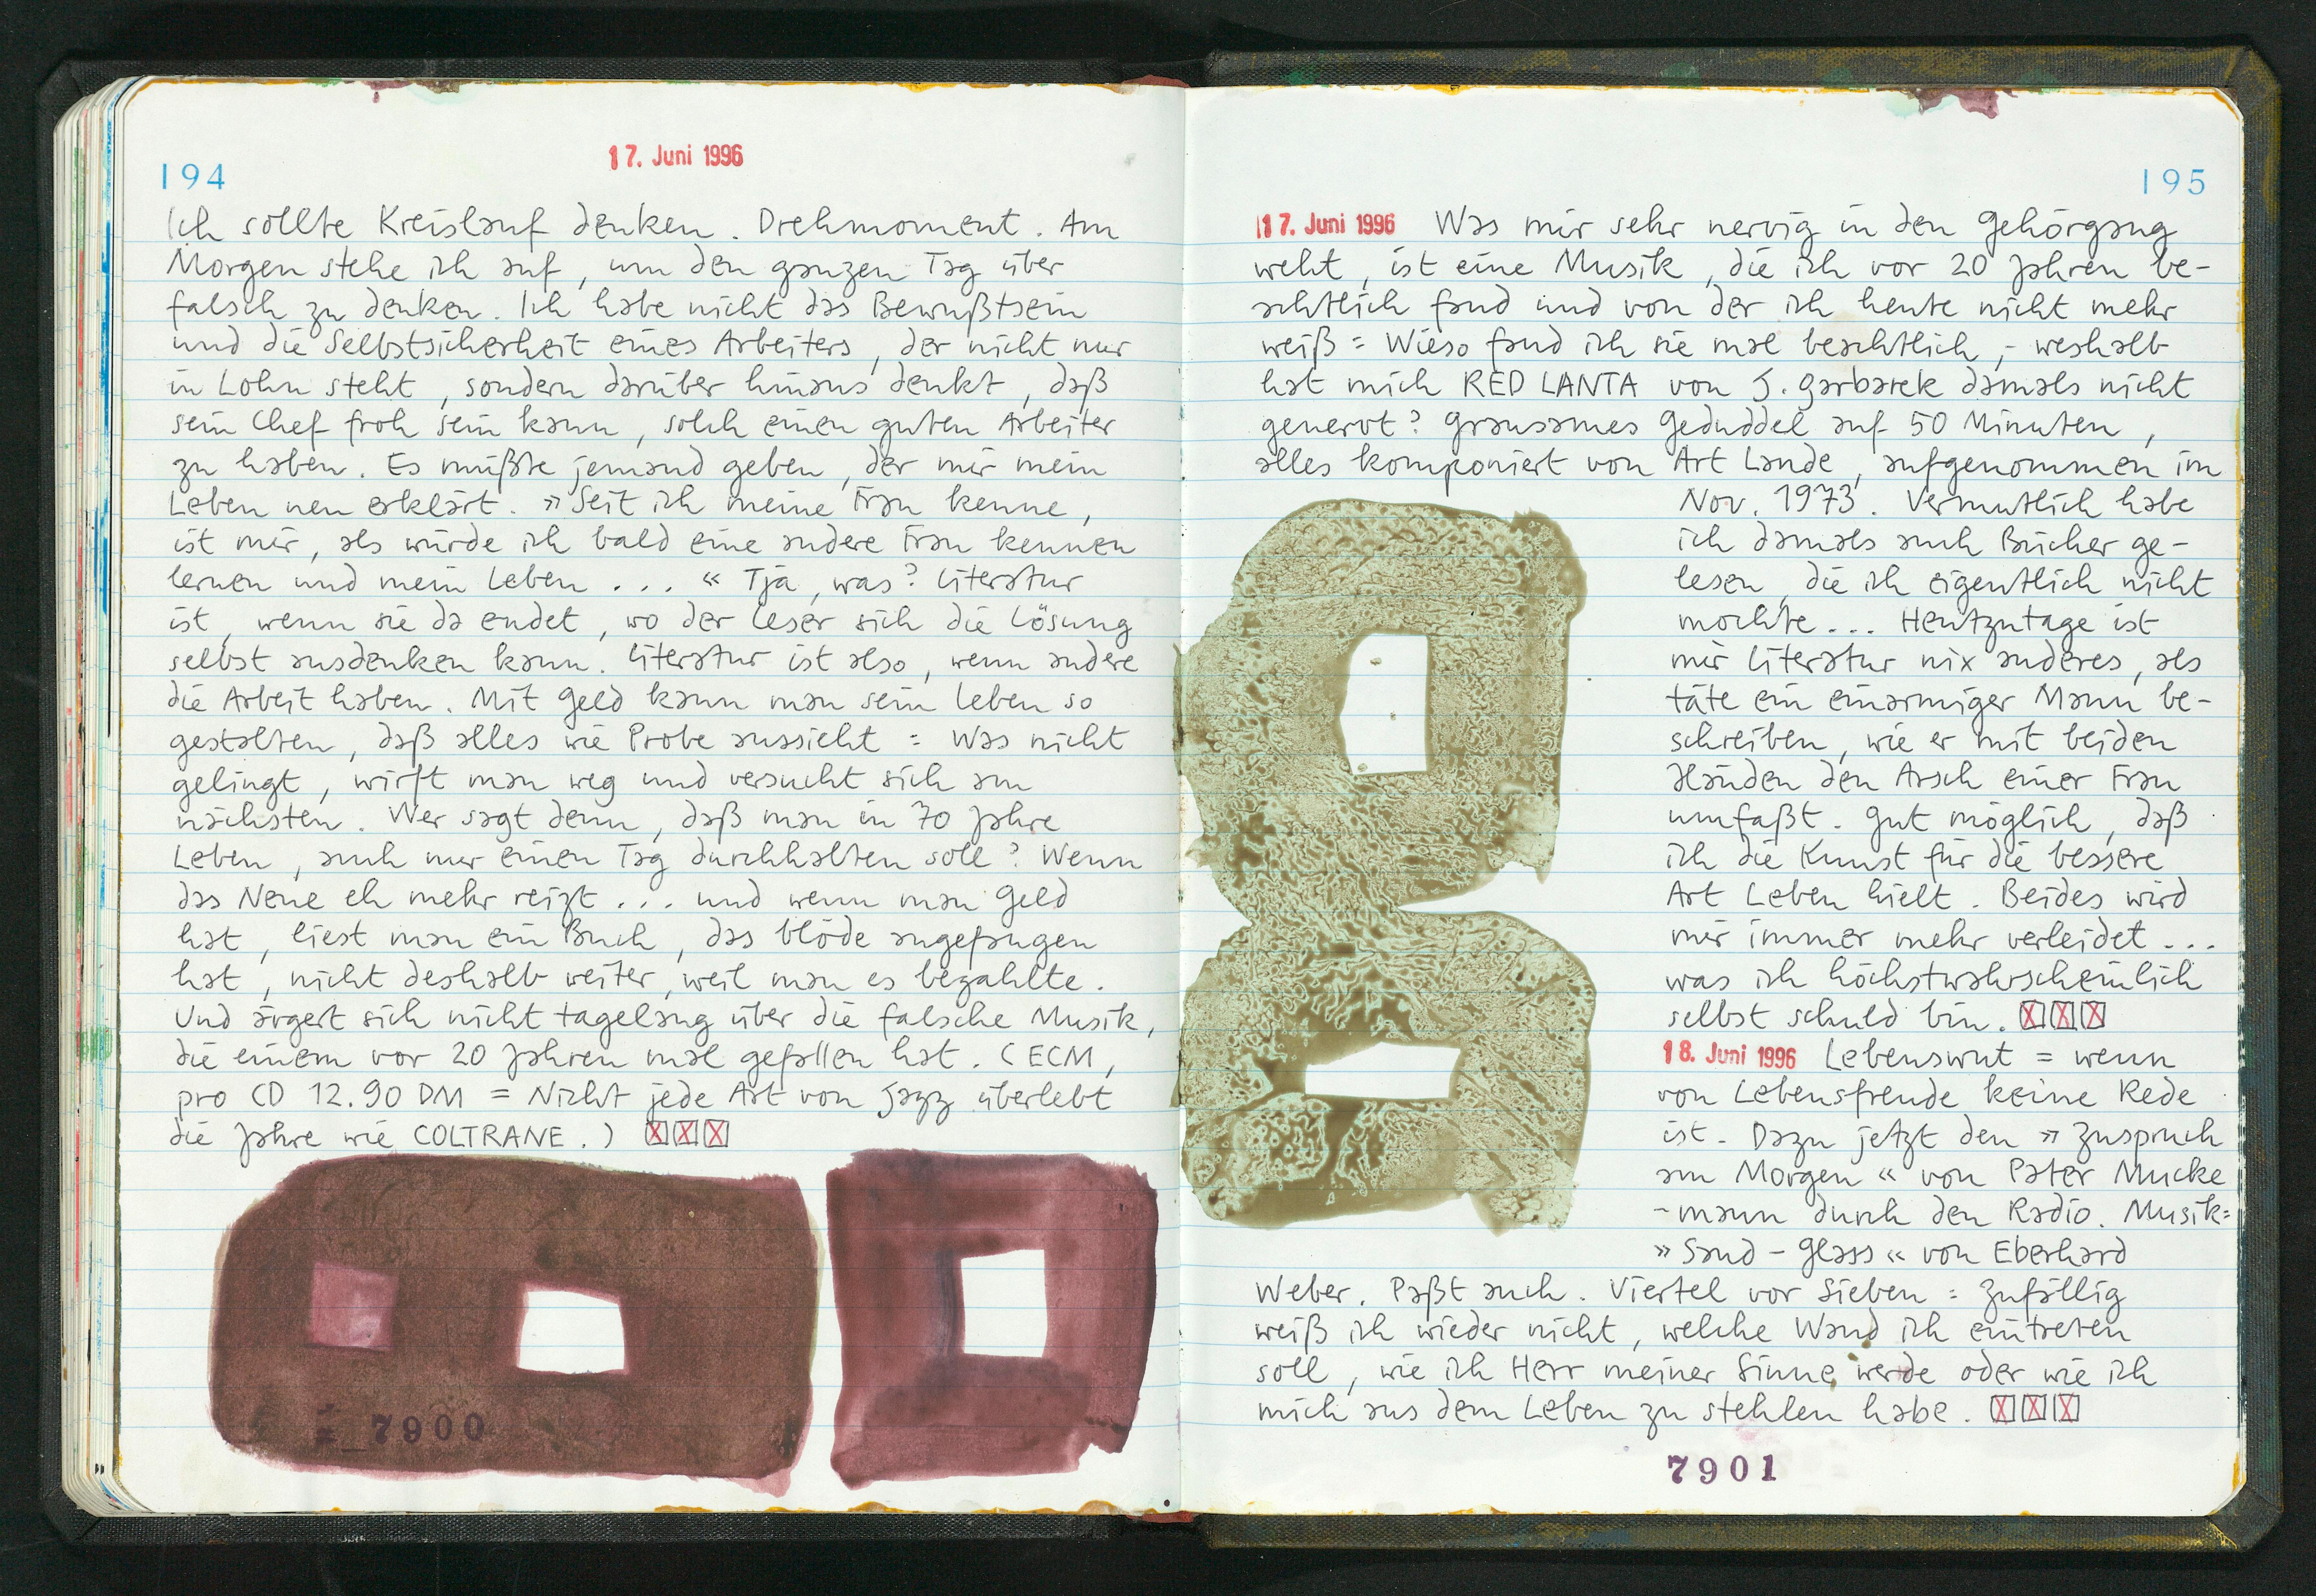 194
17. Juni 1996
Ich sollte Kreislauf denken. Drehmoment. Am
Morgen stehe ich auf, um den ganzen Tag über
falsch zu denken. Ich habe nicht das Bewußtsein
und die Selbstsicherheit eines Arbeiters, der nicht nur
in Lohn steht, sondern darüber hinaus denkt, daß
sein Chef froh sein kann, solch einen guten Arbeiter
zu haben. Es müßte jemand geben, der mir mein
Leben neu erklärt. »Seit ich meine Frau kenne,
ist mir, als würde ich bald eine andere Frau kennen
lernen und mein Leben ... « Tja, was? Literatur
ist, wenn sie da endet, wo der Leser sich die Lösung
selbst ausdenken kann. Literatur ist also, wenn andere
die Arbeit haben. Mit Geld kann man sein Leben so
gestalten, daß alles wie Probe aussieht = Was nicht
gelingt, wirft man weg und versucht sich am
nächsten. Wer sagt denn, daß man in 70 Jahre
Leben, auch nur einen Tag durchhalten soll? Wenn
das Neue eh mehr reizt ... und wenn man Geld
hat, liest man ein Buch, das blöde angefangen
hat, nicht deshalb weiter, weil man es bezahlte.
Und ärgert sich nicht tagelang über die falsche Musik,
die einem vor 20 Jahren mal gefallen hat. (ECM,
pro CD 12.90 DM = Nicht jede Art von Jazz überlebt
die Jahre wie COLTRANE.)
= _ 7900
195
17. Juni 1996 Was mir sehr nervig in den Gehörgang
weht, ist eine Musik, die ich vor 20 Jahren be-
achtlich fand und von der ich heute nicht mehr
weiß = Wieso fand ich sie mal beachtlich, - weshalb
hat mich RED LANTA von J. Garbarek damals nicht
genervt? Grausames Geduddel auf 50 Minuten,
alles komponiert von Art Lande, aufgenommen im
Nov. 1973. Vermutlich habe
ich damals auch Bücher ge-
lesen, die ich eigentlich nicht
mochte... Heutzutage ist
mir Literatur nix anderes, als
täte ein einarmiger Mann be-
schreiben, wie er mit beiden
Händen den Arsch einer Frau
umfaßt. Gut möglich, daß
ich die Kunst für die bessere
Art Leben hielt. Beides wird
mir immer mehr verleidet ...
was ich höchstwahrscheinlich
selbst schuld bin.
18. Juni 1996 Lebenswut = wenn
von Lebensfreude keine Rede
ist. Dazu jetzt den » Zuspruch
am Morgen « von Pater Mucke
-mann durch den Radio. Musik=
» Sand - Glass « von Eberhard
Weber. Paßt auch. Viertel vor Sieben = Zufällig
weiß ich wieder nicht, welche Wand ich eintreten
soll, wie ich Herr meiner Sinne werde oder wie ich
mich aus dem Leben zu stehlen habe.
7901